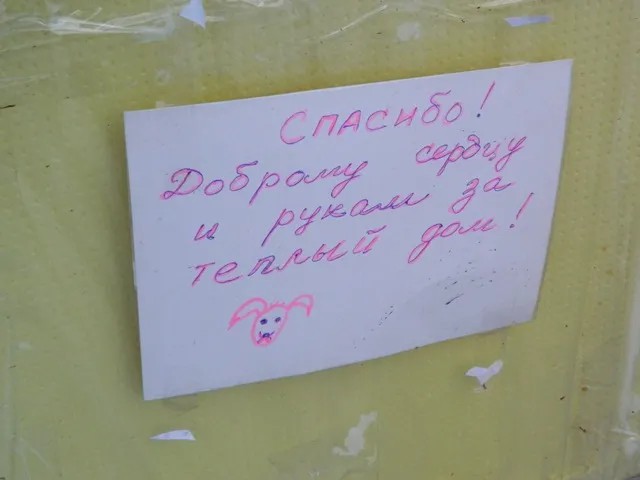 Спасибо!
Доброму сердцу
и рукам за
теплый дом!